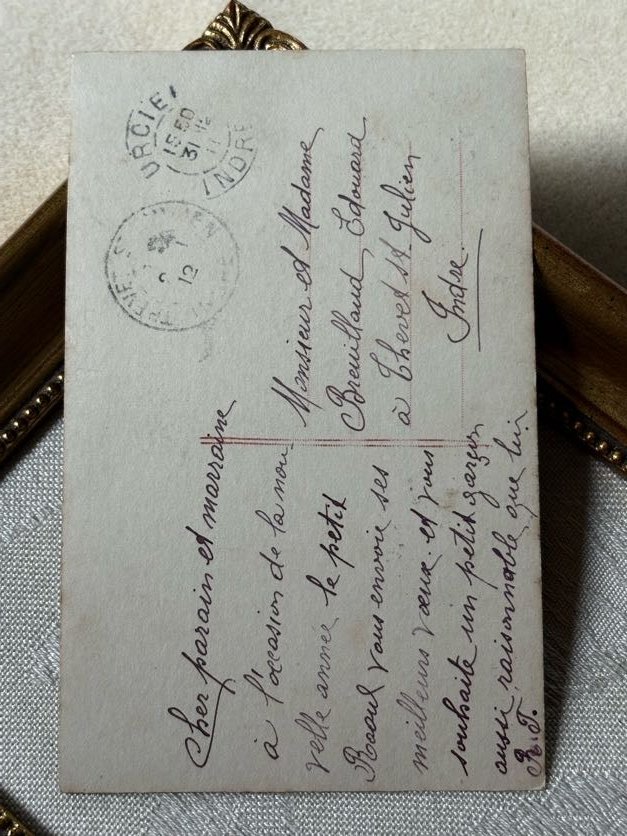 Cher parain et marraine
à l'occasion de la nou-
velle année le petit
Raoul vous envoie ses
meilleurs vœux et vous
souhaite un petit garçon
aussi raisonnable que lui
R. T.
Monsieur et Madame
Breuillaud Edouard
à Thevet St Julien
Indre
INDRE
15 50
31
12